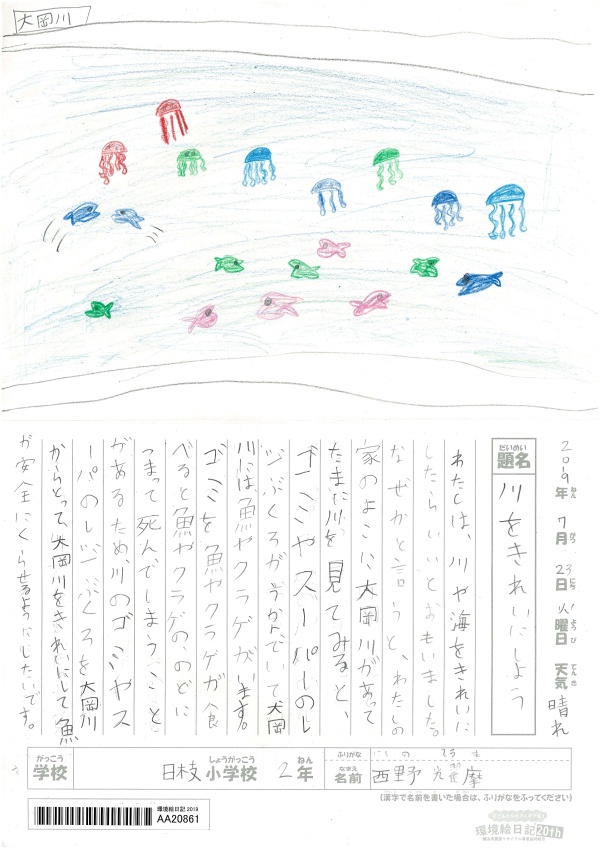 大岡川
2019年7月23日火曜日 天気 晴れ
ねん がつ にち ようび てんき
だいめい
題名 川をきれいにしよう
わたしは、川や海をきれいに
したらいいとおもいました。
なぜかと言うと、わたしの
家のよこに大岡川があって
たまに川を見てみると、
ゴミやスーパーのレ
ジぶくろがうかんでいて大岡
川には魚やクラゲがいます。
ゴミを魚やクラゲが食
べると魚やクラゲの、のどに
つまって死んでしまうこと
があるため、川のゴミやス
ーパのレジぶくろを大岡川
からとって、大岡川をきれいにして魚
が安全にくらせるようにしたいです。
がっこう しょうがっこう ねん ふりがな にしの
学校 日枝小学校 2年 なまえ 名前 西野
(漢字で名前を書いた場合は、ふりがなをふってください)
環境絵日記 2019
AA20861
環境絵日記 20th